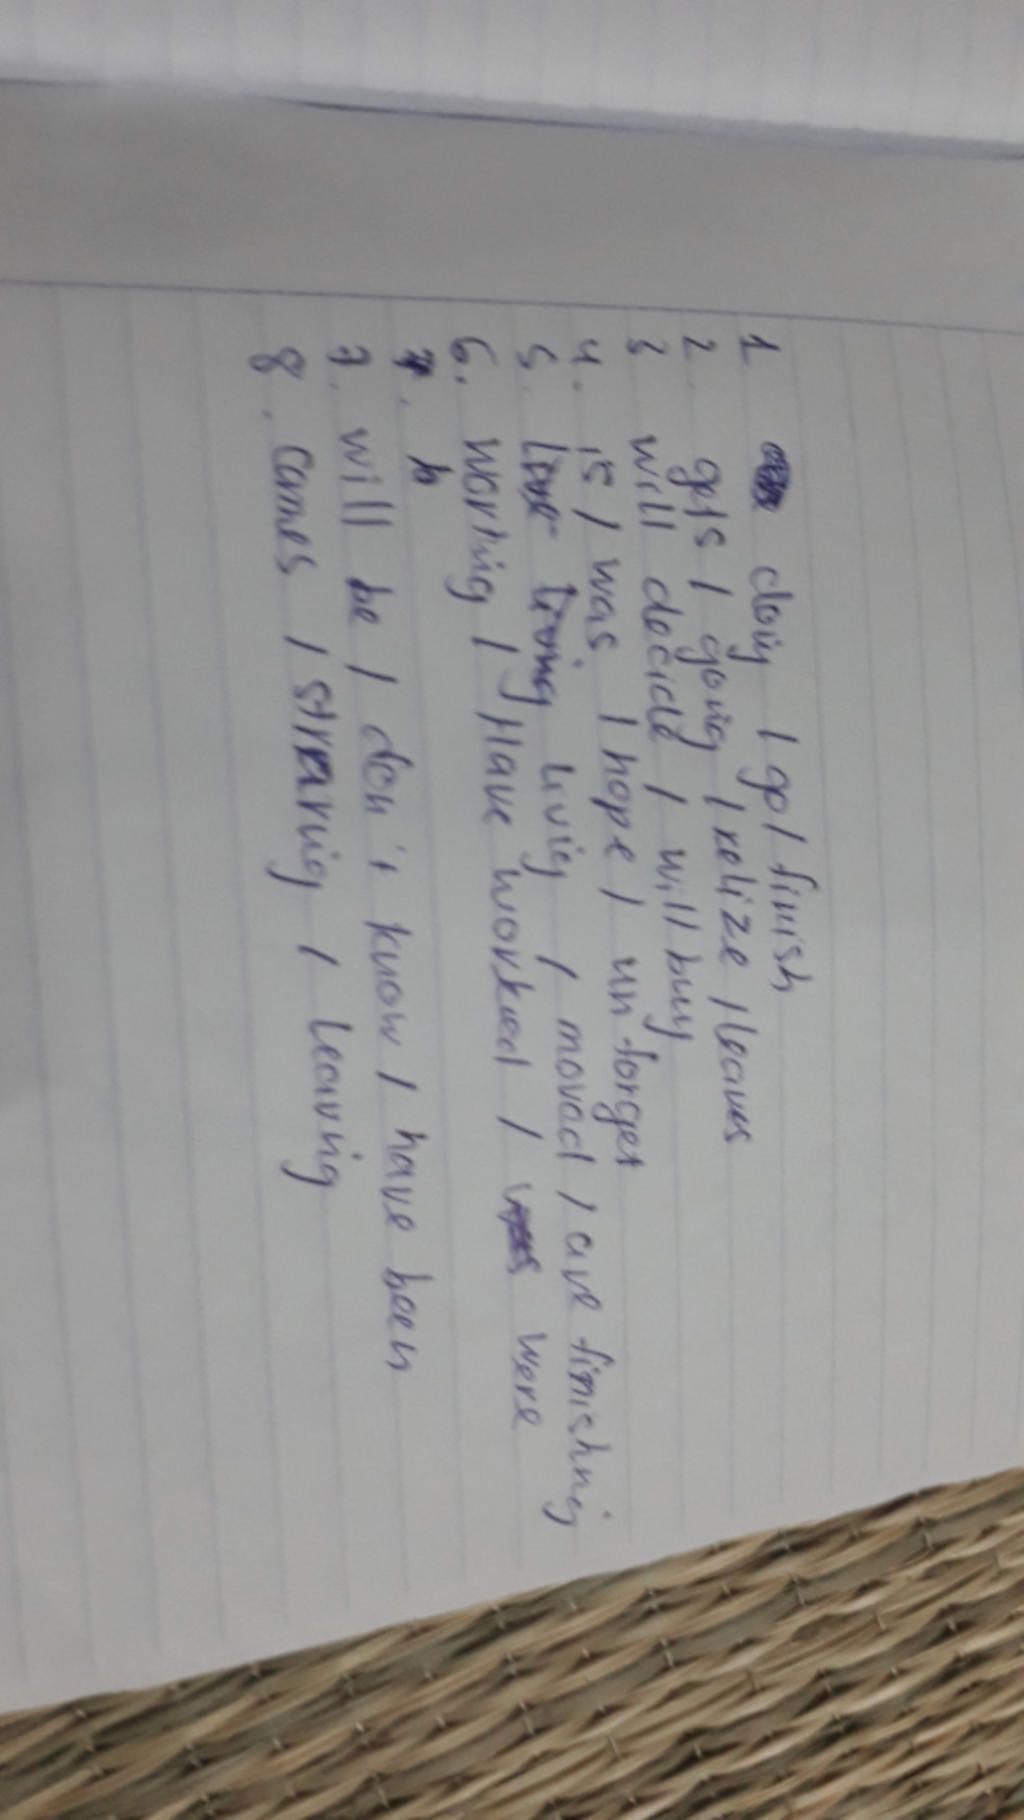 1 doing / go / finish
2. gets / going / relize / leaves
3 will decide / will buy
4. is / was / hope / un forget
5. live living living / moved / are finishing
6. working / Have worked / was were
7. h
7. will be / don't know / have been
8. comes / straring / leaving